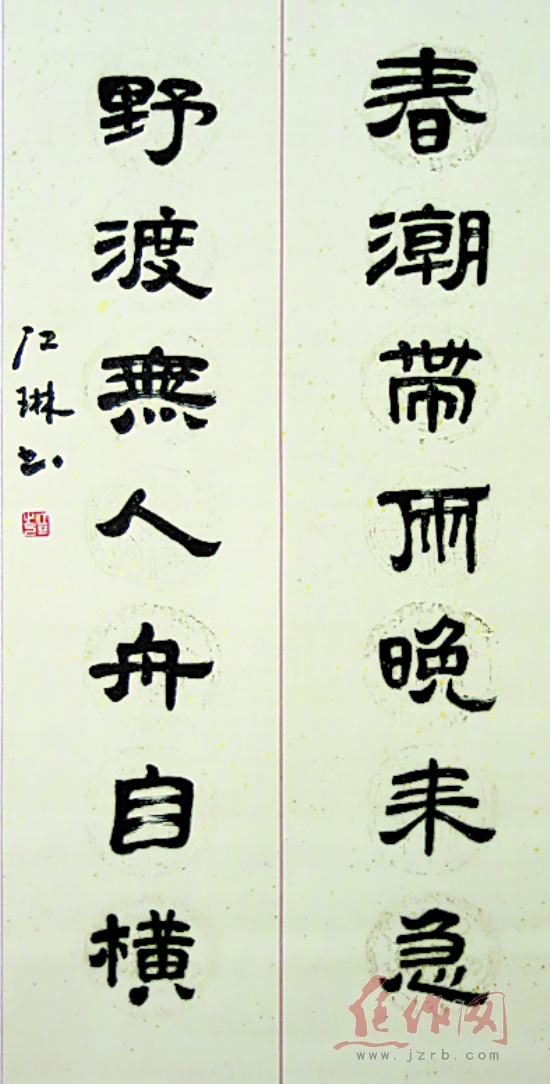 春潮帶雨晚来急
野渡無人舟自橫
江琳书
焦作网
www.jzrb.com